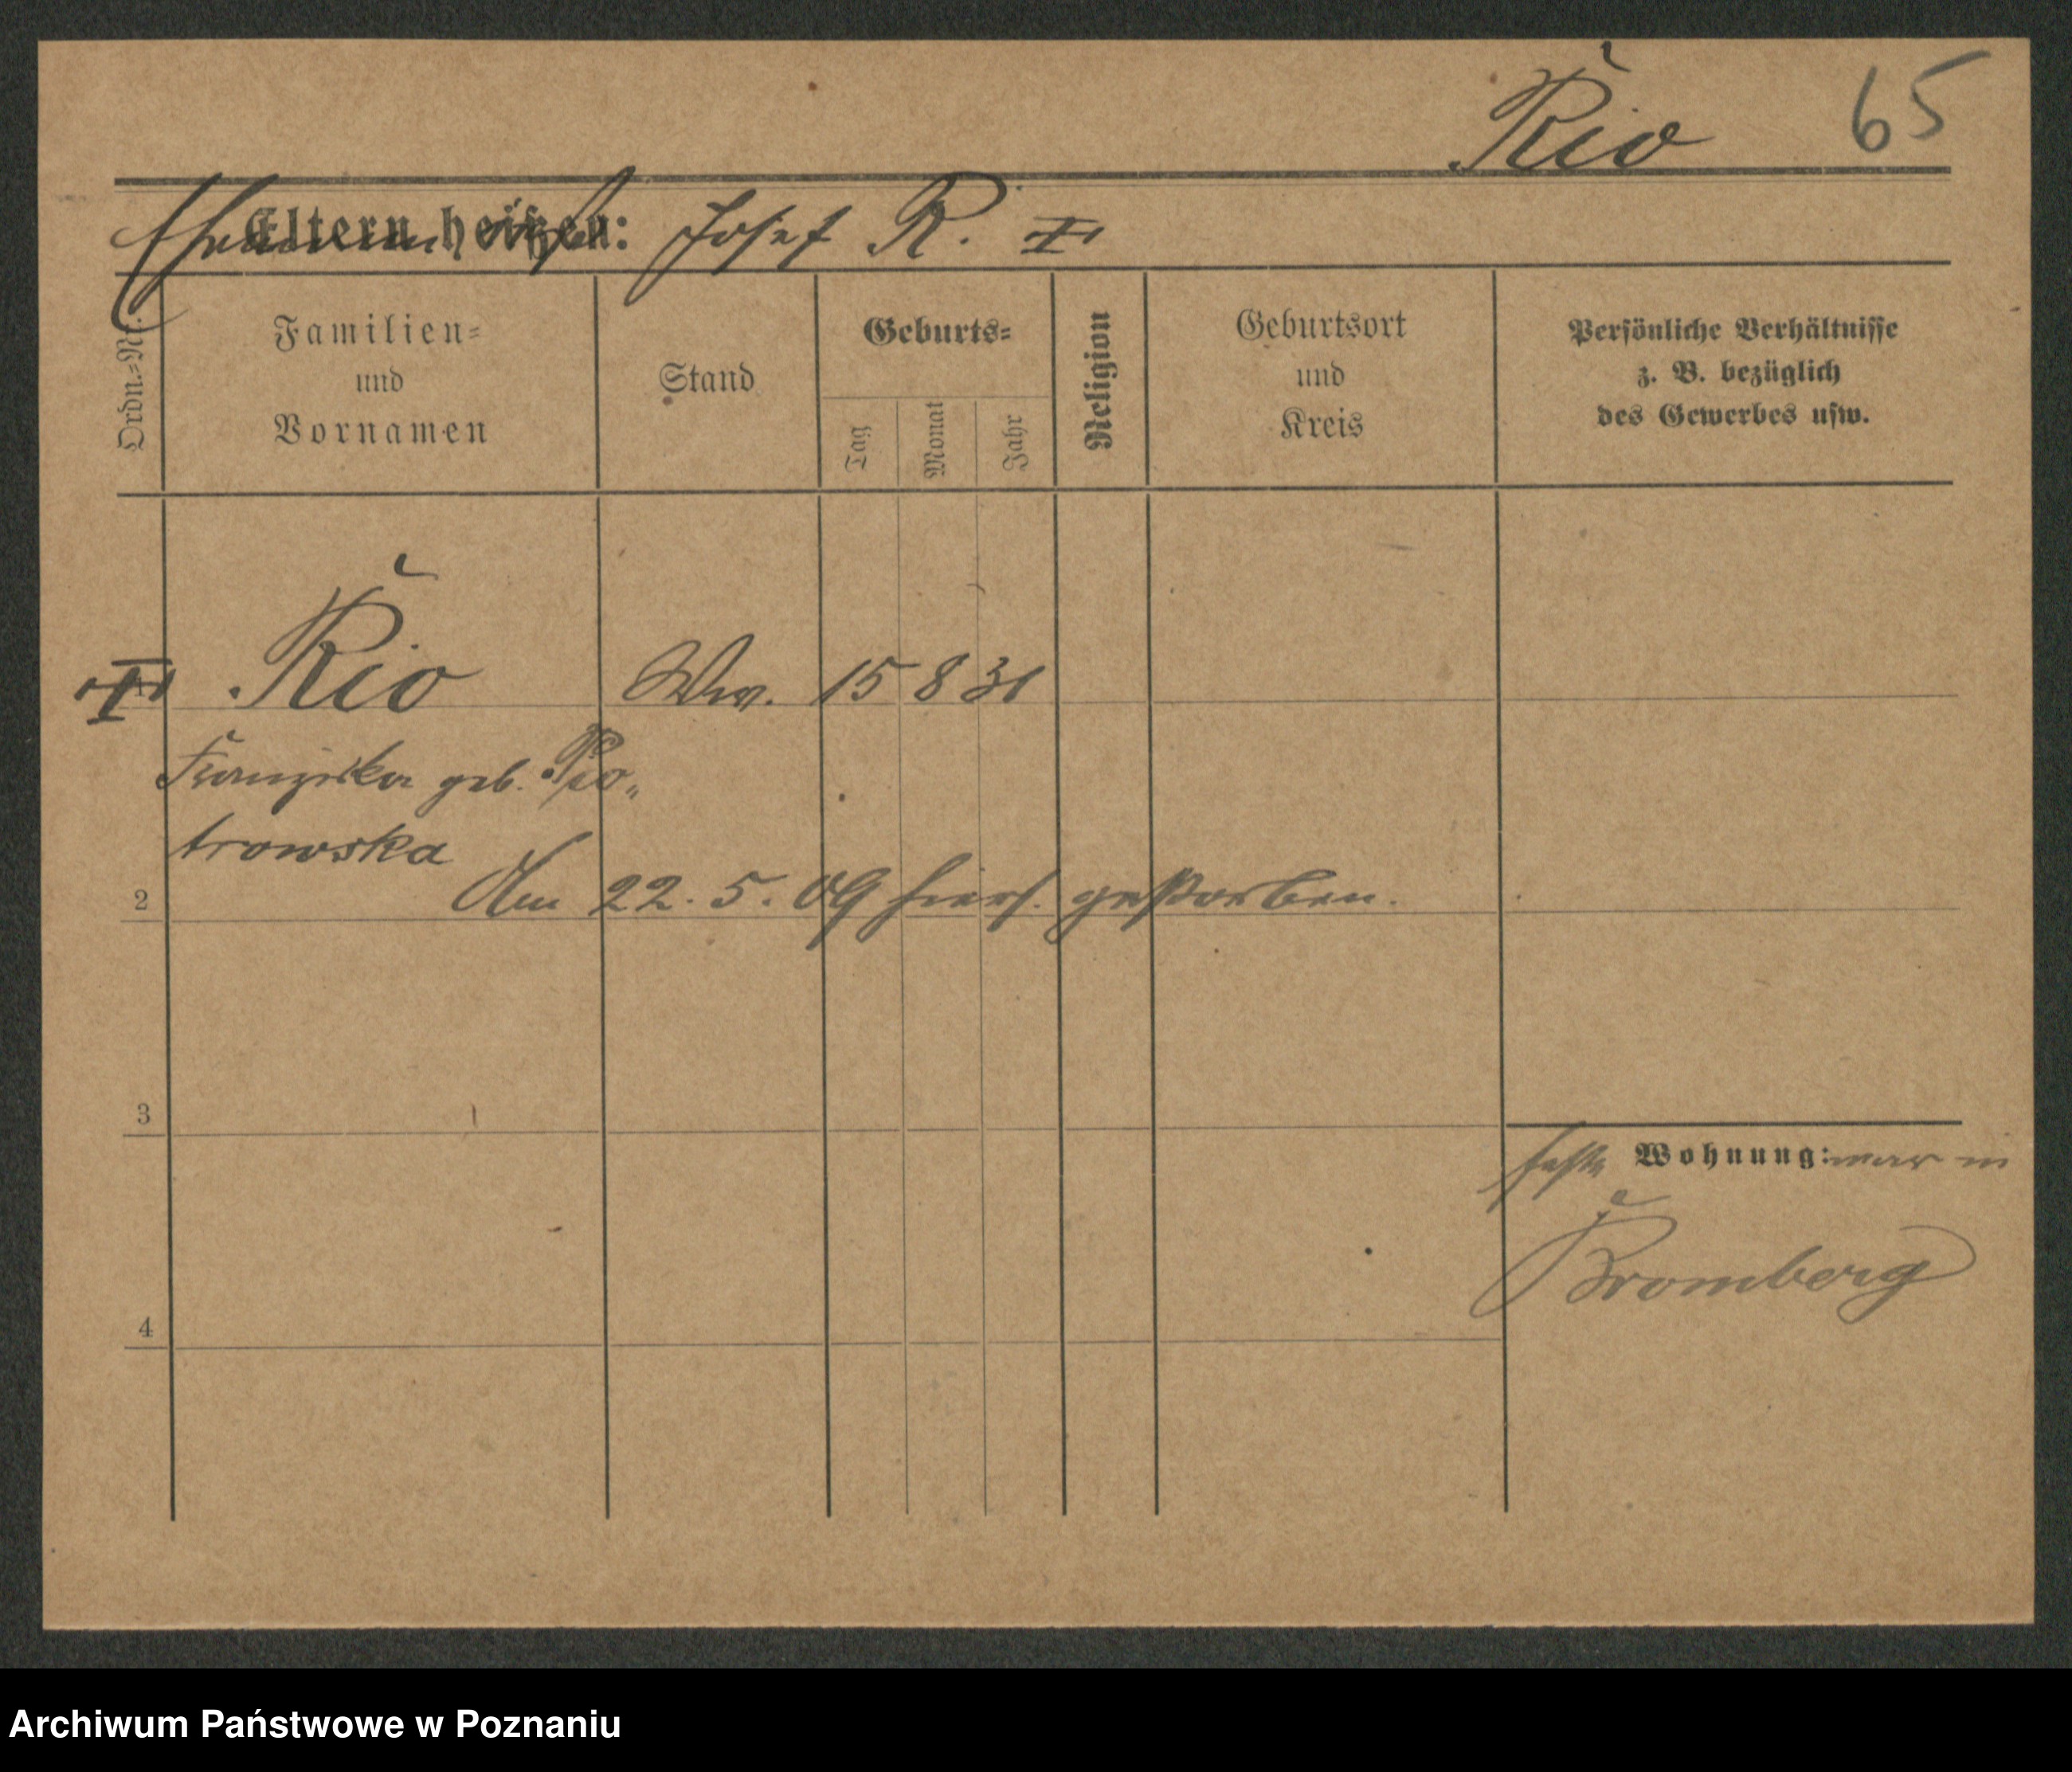 Rio 65
Eltern heißen: Ehemann hieß Josef R. †
Ordn.-Nr.
Familien-
und
Vornamen
Stand
Geburts-
Tag
Monat
Jahr
Religion
Geburtsort
und
Kreis
Persönliche Verhältnisse
z. B. bezüglich
des Gewerbes usw.
1 † Rio Ww. 15 8 31
Franziska geb. Pio„
trowska
2 Am 22. 5. 09 hiers. gestorben.
3
feste Wohnung: war in
Bromberg
4
Archiwum Państwowe w Poznaniu